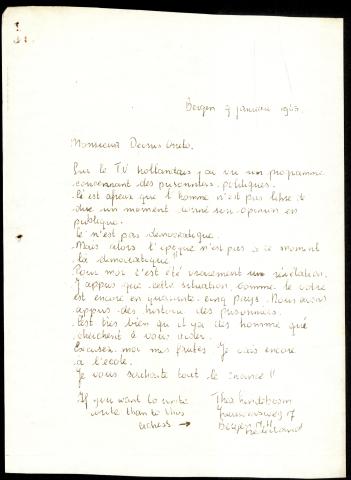 Bergen 7 januari 1983.
Monsieur
Sur le TV hollandais j'ai vu un programme
concernant des prisonniers politiques.
C'est afreux que l'homme n'est pas libre de
dire un moment donné son opinion en
publique.
Ce n'est pas democratique.
Mais alors l'epoque n'est pas a ce moment
là democratique!!
Pour moi c'est été vraiment un révélation.
J'appris que cette situation, comme le votre
est encore en quarante cinq pays. Nous avons
appris des histoire des prisonniers.
C'est très bien qu'il y a des homme qui
cherchent à vous aider.
Excusez moi mes frutes. Je vais encore
à l'ecole.
Je vous souhaite tout le chance!!
If you want to write
write than to this
adress →
Bergen N.H.